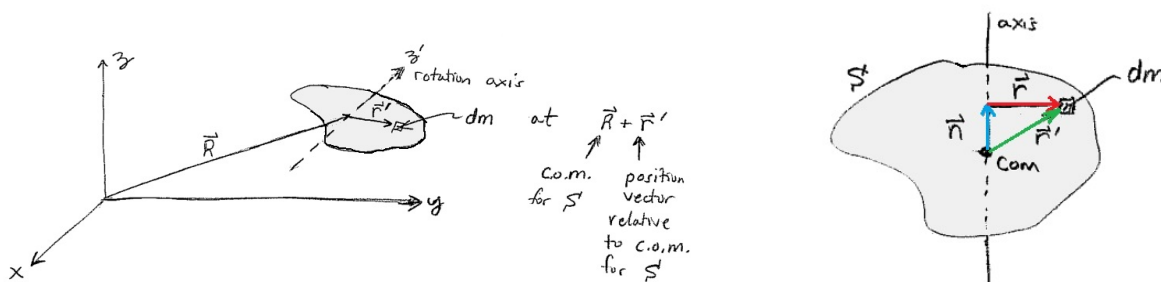 z
z′
rotation axis
r⃗′
dm at R⃗ + r⃗′
R⃗
c.o.m.
for S
position
vector
relative
to c.o.m.
for S
y
x
axis
S
dm
r⃗
n⃗
r⃗′
com